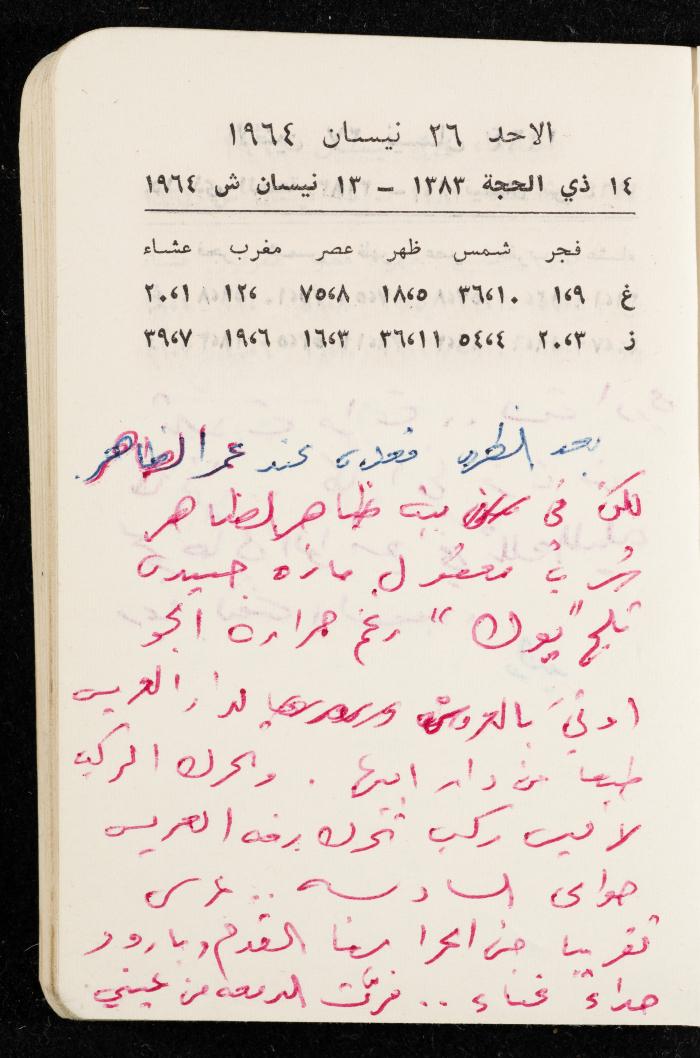 الاحد ٢٦ نيسان ١٩٦٤
١٤ ذي الحجة ١٣٨٣ – ١٣ نيسان ش ١٩٦٤
فجر شمس ظهر عصر مغرب عشاء
غ ١،٩ ٣٦،١٠ ١٨،٥ ٧٥،٨ ١٢، ٢٠،١
ز ٢٠،٣ ٥٤،٤ ٣٦،١١ ١٦،٣ ١٩،٦ ٣٩،٧
بعد الظهر عند عمر الظاهر
لكن في بيت ظاهر الظاهر
شرب مفعول
ثلج "يوك" رغم حرارة الجو
اوتي بالعروس لدار العريس
طبعا من دار ابيها . وتحرك الركب
لا ليس ركب تحرك زفة العريس
حوالي السادسة .. عرس
تقريبا من القدم وبارود
حداء غناء .. فرّت الدمعة من عيني